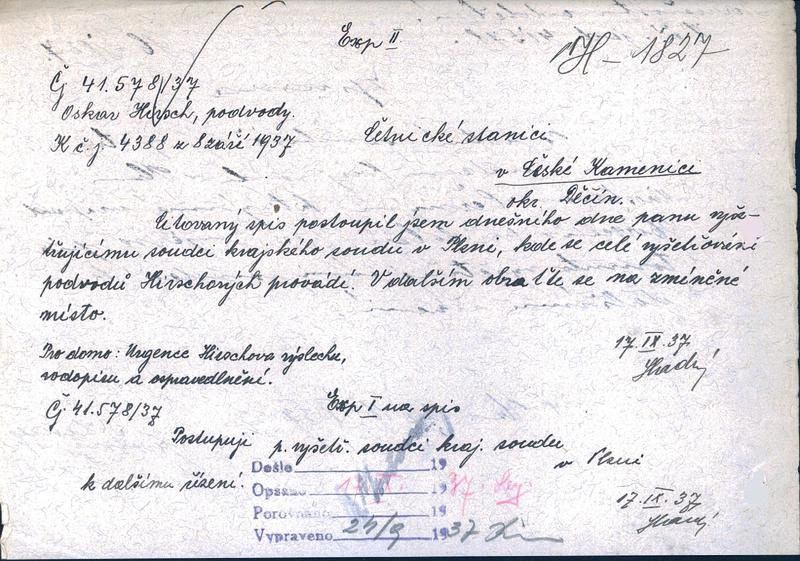 Exp II
H-1827
Čj 41.578/37
Oskar Hirsch, podvody.
K č. j. 4388 z 8 září 1937
Četnické stanici
v České Kamenici
okr. Děčín.
Citovaný spis postoupil jsem dnešního dne panu vyše-
třujícímu soudci krajského soudu v Plzni, kde se celé vyšetřování
podvodů Hirschových provádí. V dalším obraťte se na zmíněné
místo.
Pro domo: Urgence Hirschova výslechu,
rodopisu a ospravedlnění.
17.IX.37
Čj. 41.578/37
Exp I na spis
Postupuji p. vyšetř. soudci kraj. soudu
v Plzni
k dalšímu řízení.
17.IX.37
Došlo 19
Opsáno 37
Porovnáno 19
Vypraveno 24/9 1937